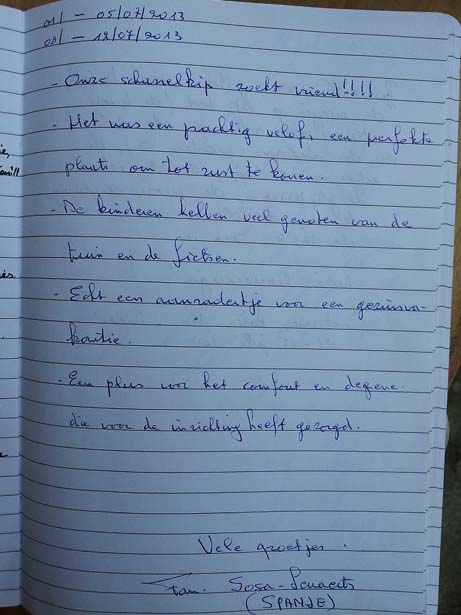 01/ - 05/07/2013
08/ - 12/07/2013
- Onze scharrelkip zoekt vriend!!!!
- Het was een prachtig velof, een perfekte
plaats om tot rust te komen.
- De kinderen hebben veel genoten van de
tuin en de fietsen.
- Echt een aanradertje voor een gezinsva-
kantie.
- Een plus voor het comfort en degene
die voor de inrichting heeft gezorgd.
Vele groetjes.
Fam. Sosa-
(SPANJE)